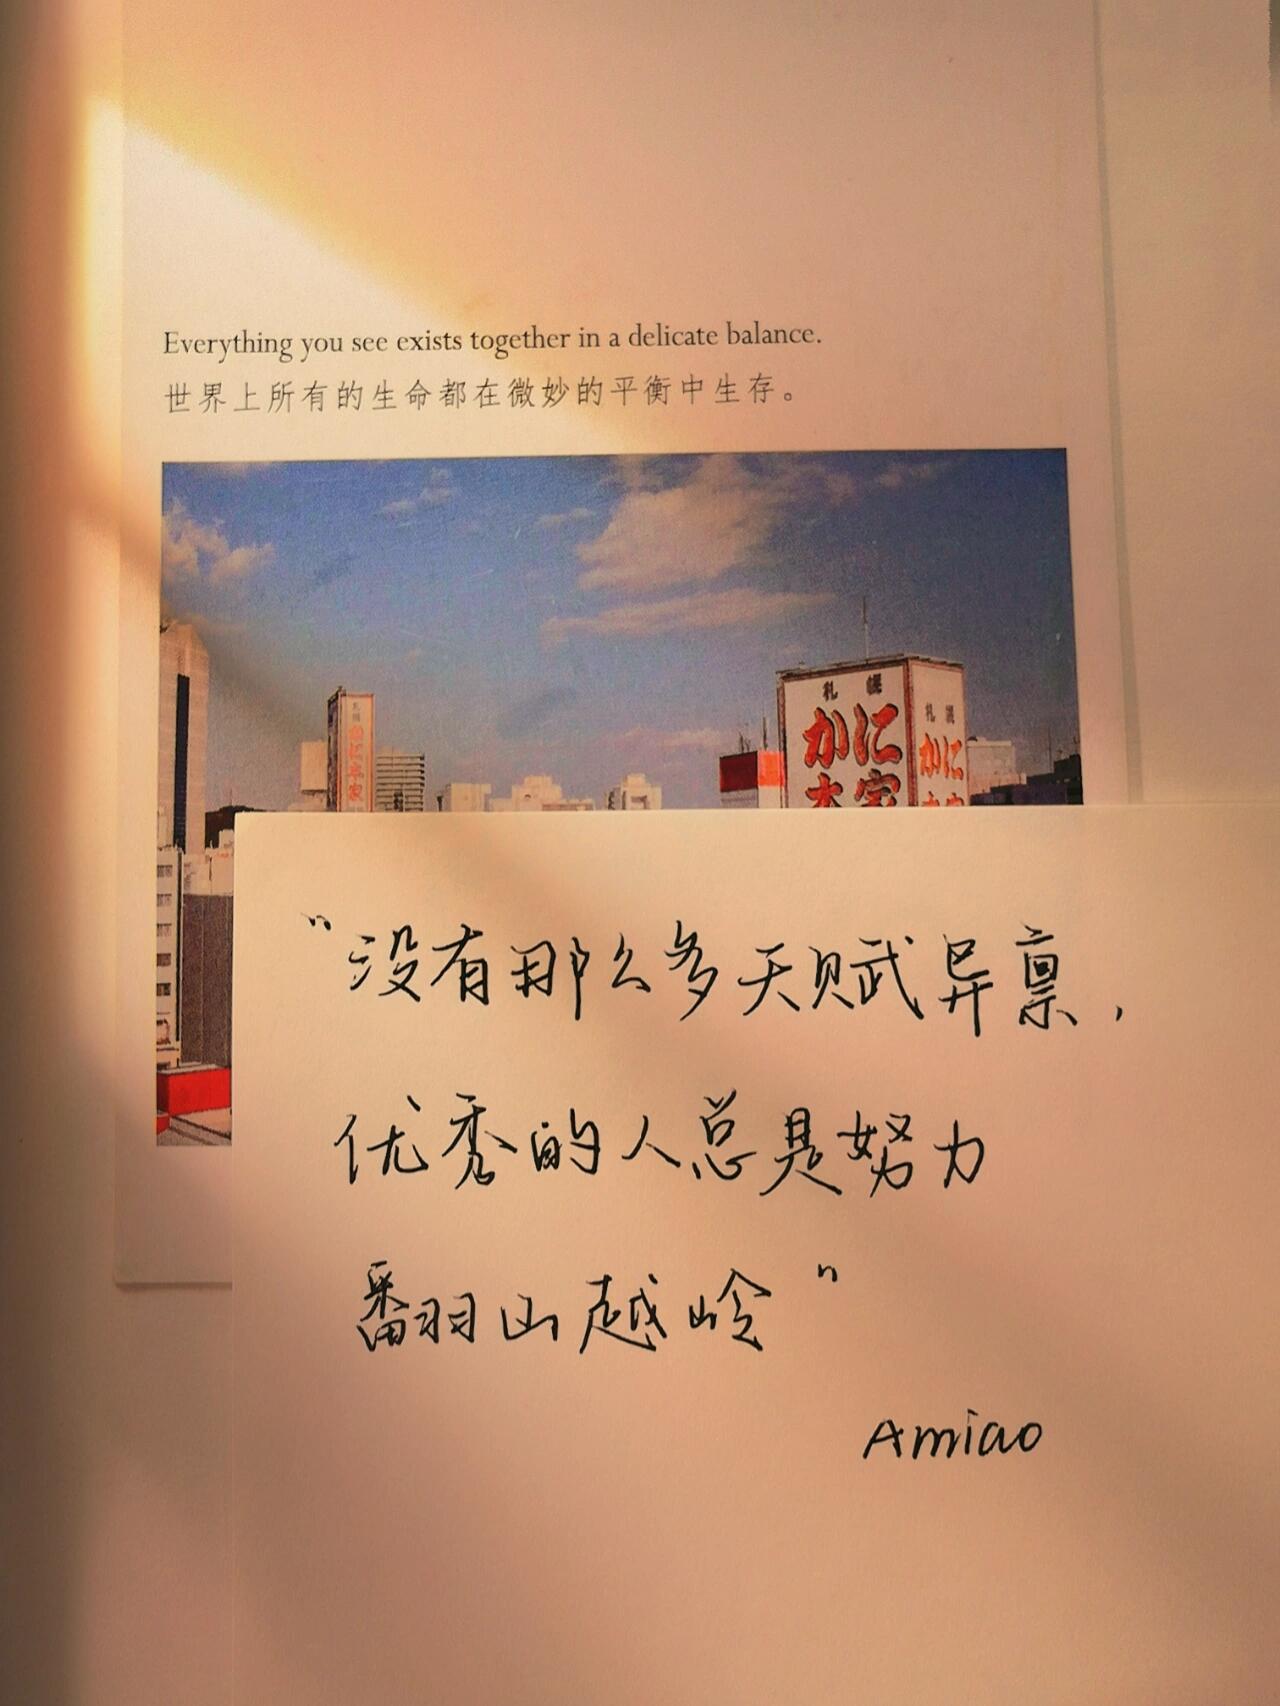 Everything you see exists together in a delicate balance.
世界上所有的生命都在微妙的平衡中生存。
札幌
かに
本家
札幌
かに
本家
札幌
かに
"没有那么多天赋异禀，
优秀的人总是努力
翻山越岭"
Amiao